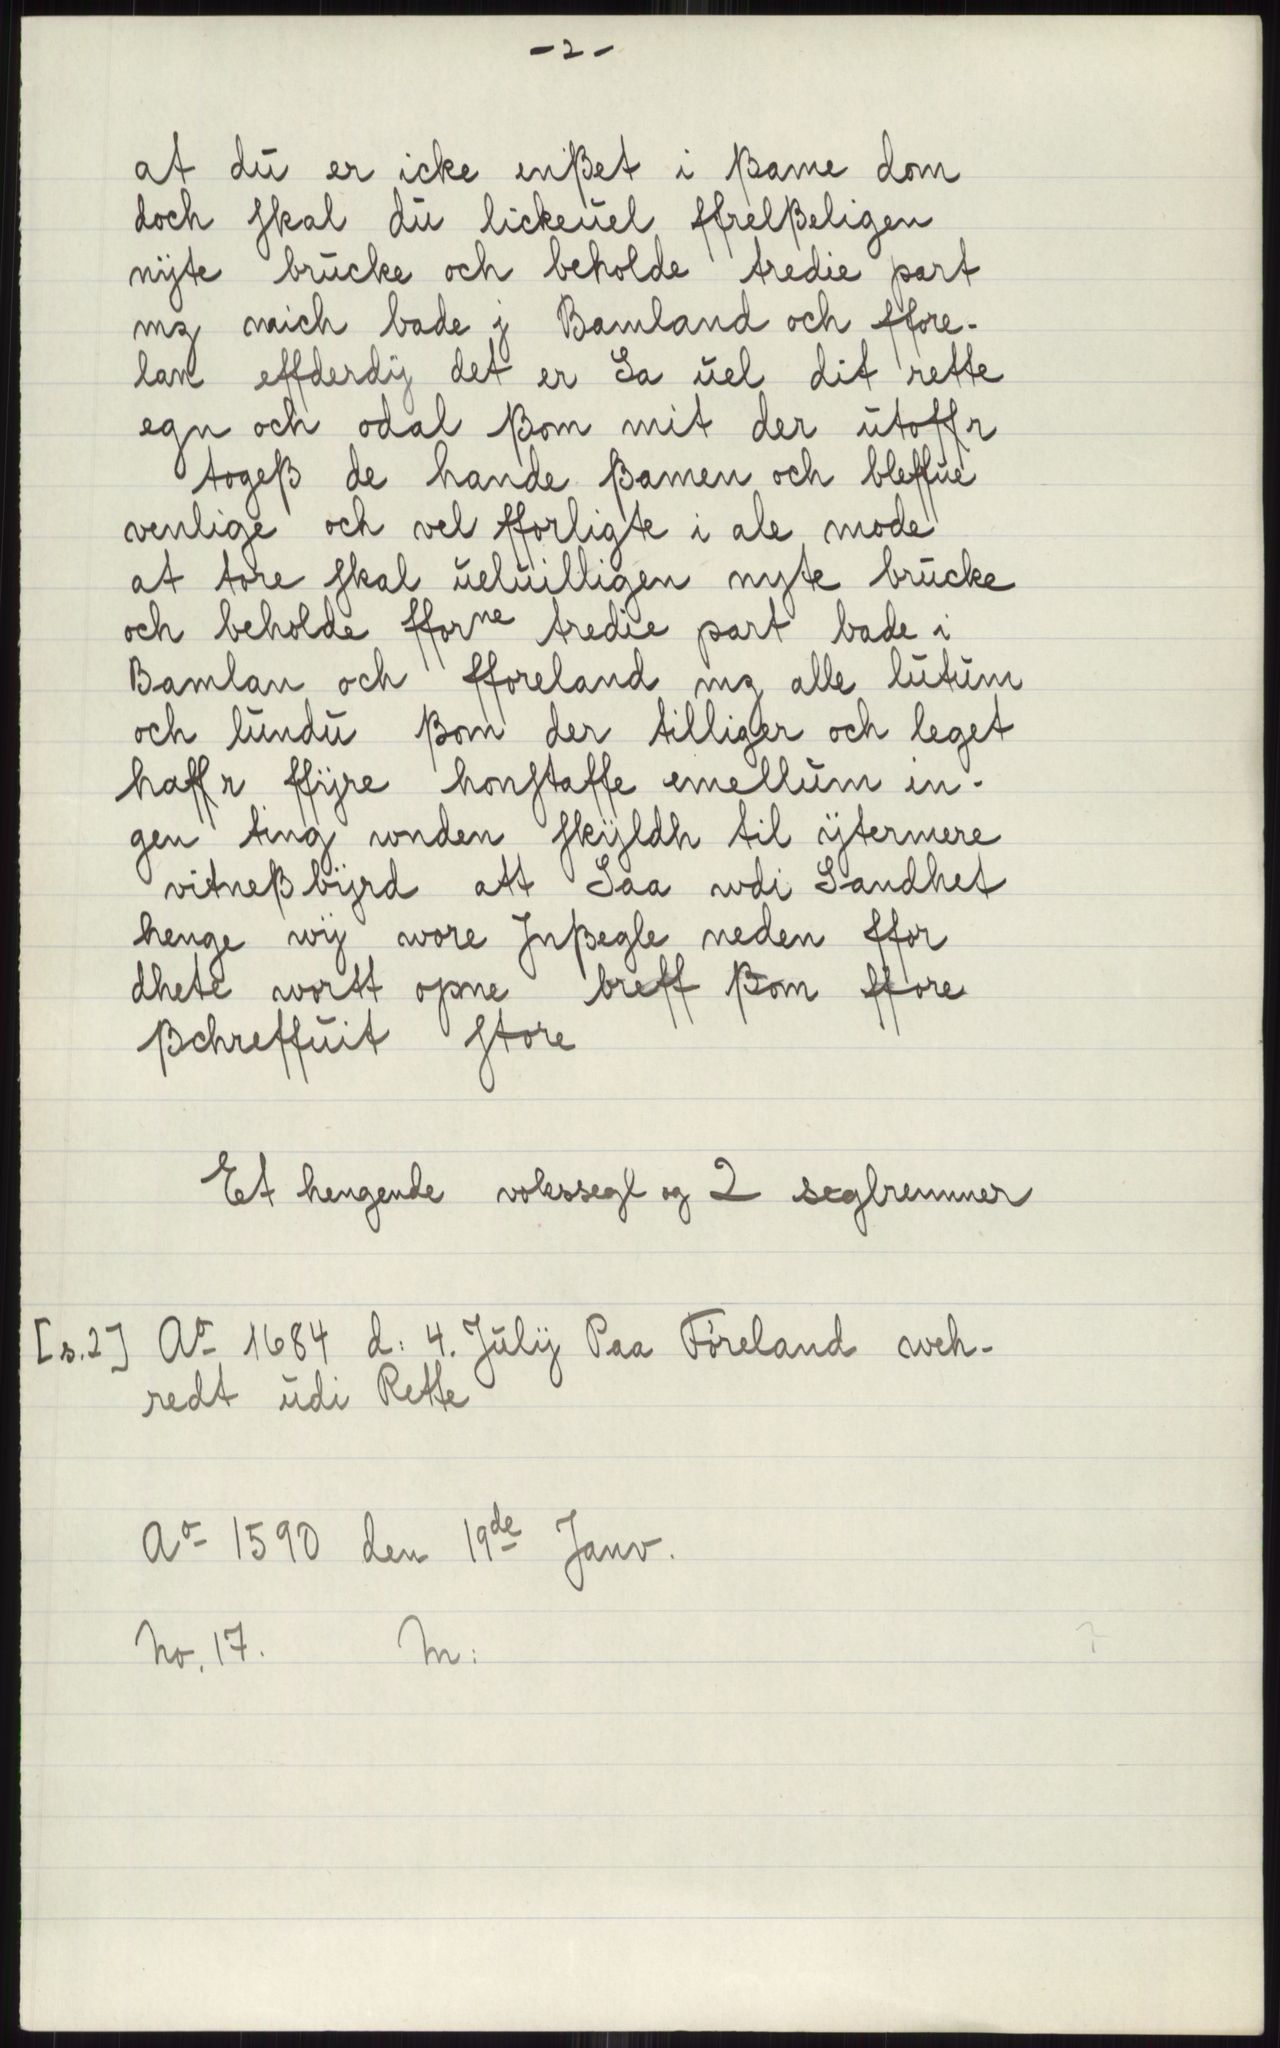 - 2 -
at dü er icke enßet i ßame dom
doch skal dü lickeüel ffrelßeligen
nÿte brücke och beholde tredie part
mz mich bade j Bamland och ffore-
lan effderdÿ det er Sa üel dit rette
egn och odal ßom mit der ütoffr
togeß de hande ßamen och bleffüe
venlige och vel fforligte i ale mode
at tore skal üelüilligen nyte brücke
och beholde fforne tredie part bade i
Bamlan och fforeland mz alle lütüm
och lündü ßom der tilliger och leget
haffr ffÿre honstaffe emellüm in-
gen ting wnden skÿldh til ÿtermere
vitneßbÿrd att Saa wdi Sandhet
henge wÿ wore Jnßegle neden ffor
dhete wortt opne breff ßom ffore
ßchreffüit store
Et hengende vokssegl og 2 seglremmer
[s.2] Ao 1684 d: 4. Jülÿ Paa Föreland weh-
redt üdi Rette
Ao 1590 den 19de Janv.
No. 17. M: